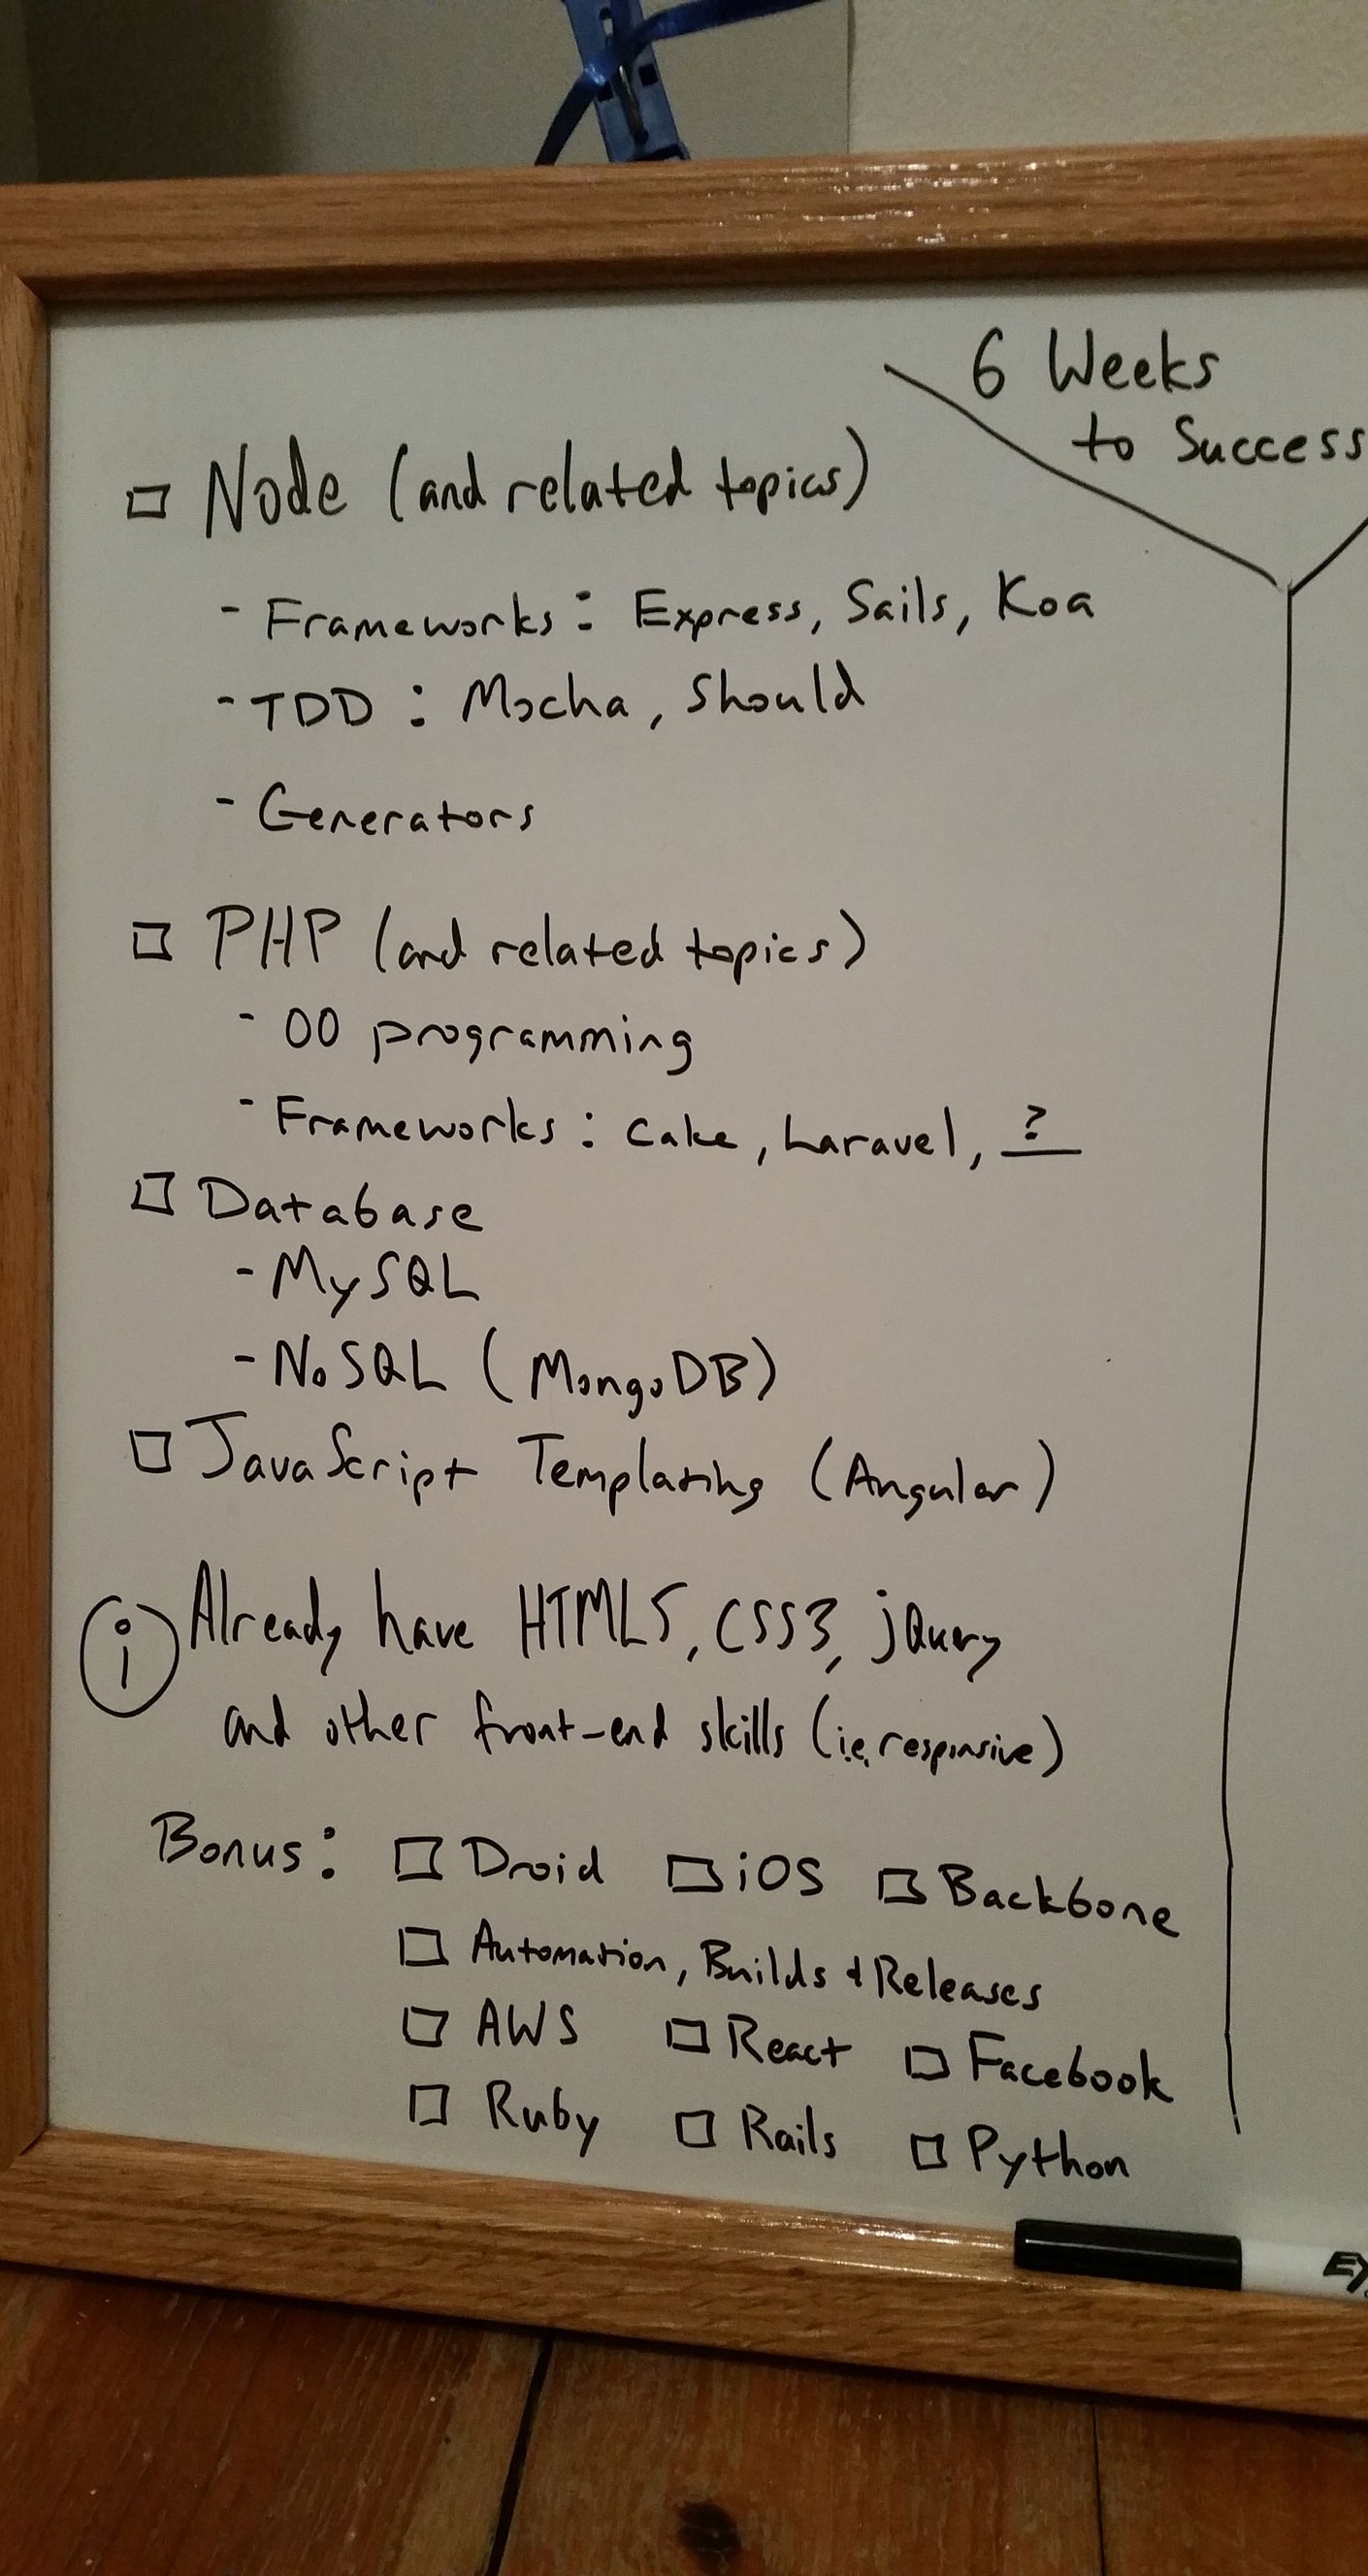 6 Weeks
to Success
□ Node (and related topics)
- Frameworks: Express, Sails, Koa
- TDD: Mocha, Should
- Generators
□ PHP (and related topics)
- OO programming
- Frameworks: Cake, Laravel, ?
□ Database
- MySQL
- NoSQL (MongoDB)
□ JavaScript Templating (Angular)
i Already have HTML5, CSS3, jQuery
and other front-end skills (i.e. responsive)
Bonus: □ Droid □ iOS □ Backbone
□ Automation, Builds & Releases
□ AWS □ React □ Facebook
□ Ruby □ Rails □ Python